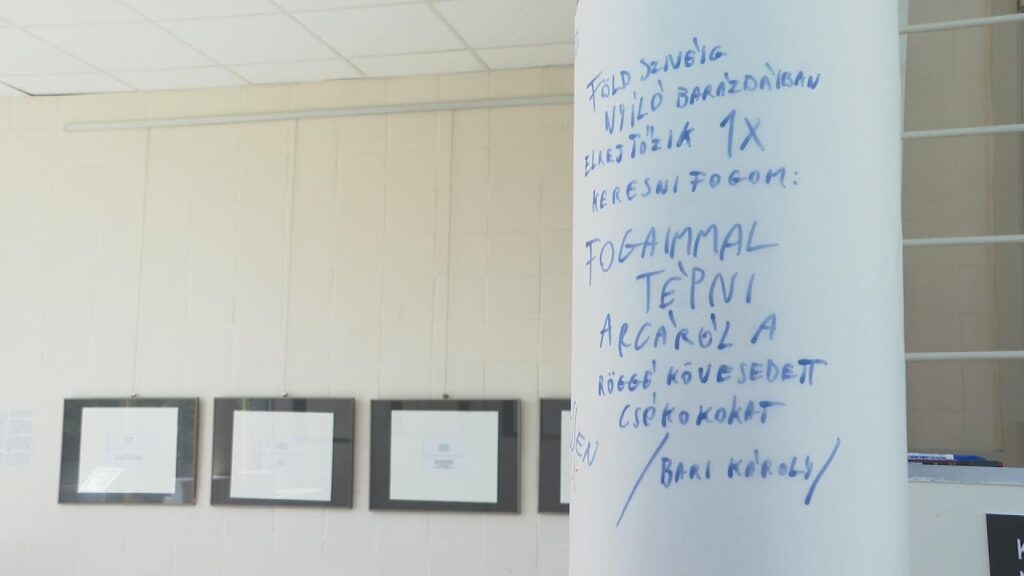 FÖLD SZIVÉIG
NYÍLÓ BARÁZDÁIBAN
ELREJTŐZIK 1X
KERESNI FOGOM:
FOGAIMMAL
TÉPNI
ARCÁRÓL A
RÖGGÉ KÖVESEDETT
CSÓKOKAT
/BARI KÁROLY/